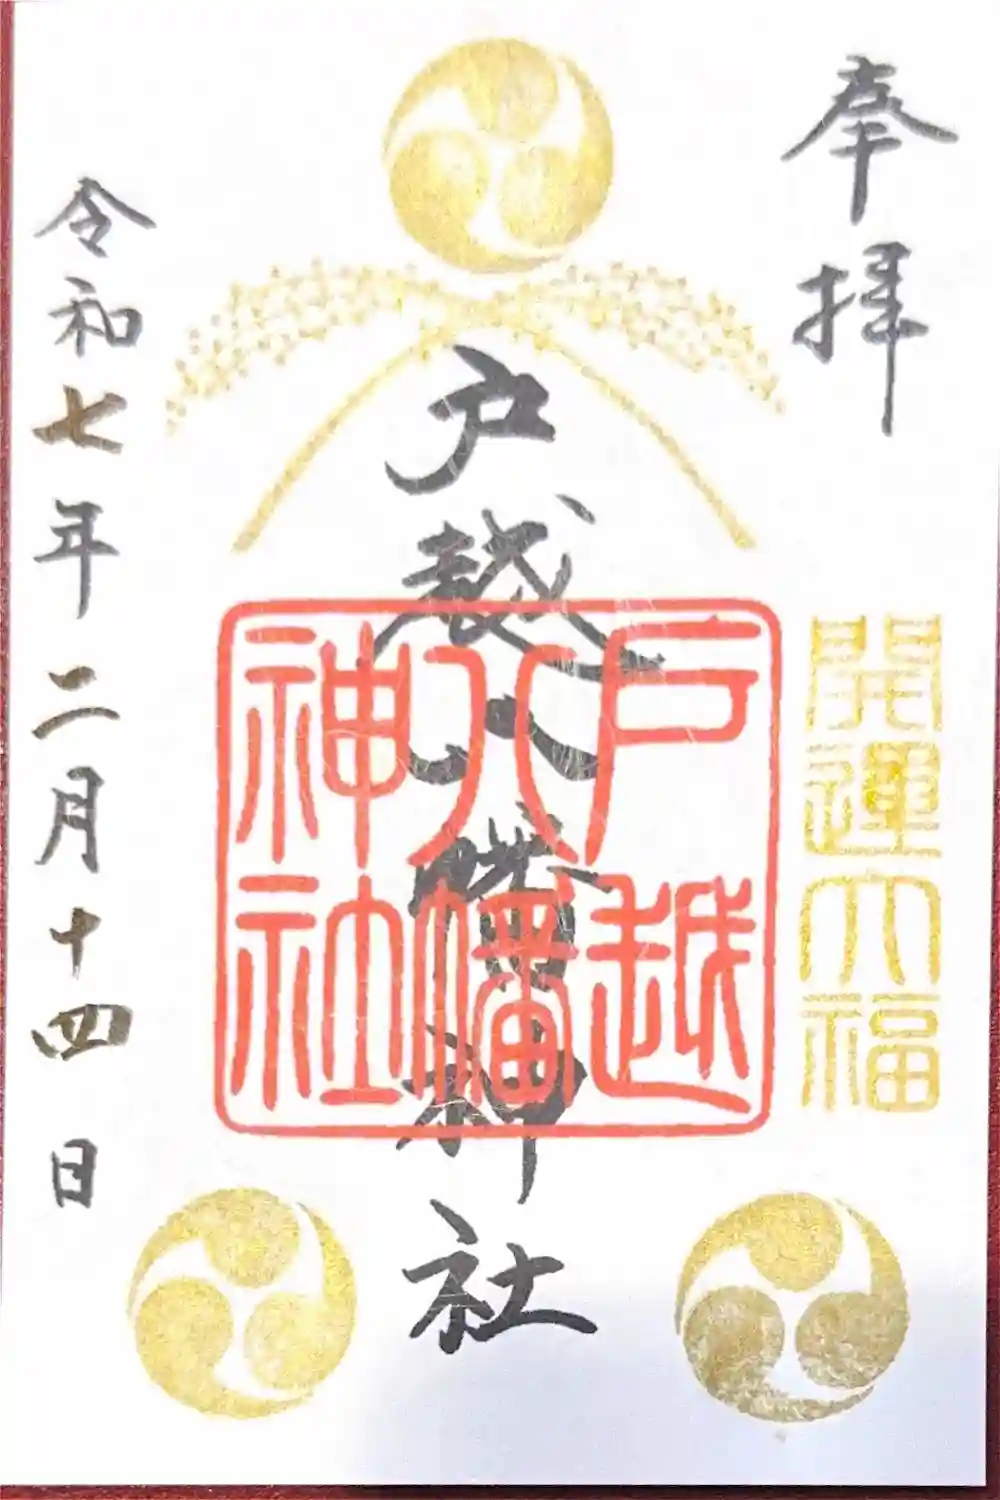 奉拝
開運大福
戸越八幡神社
戸越
八幡
神社
令和七年二月十四日